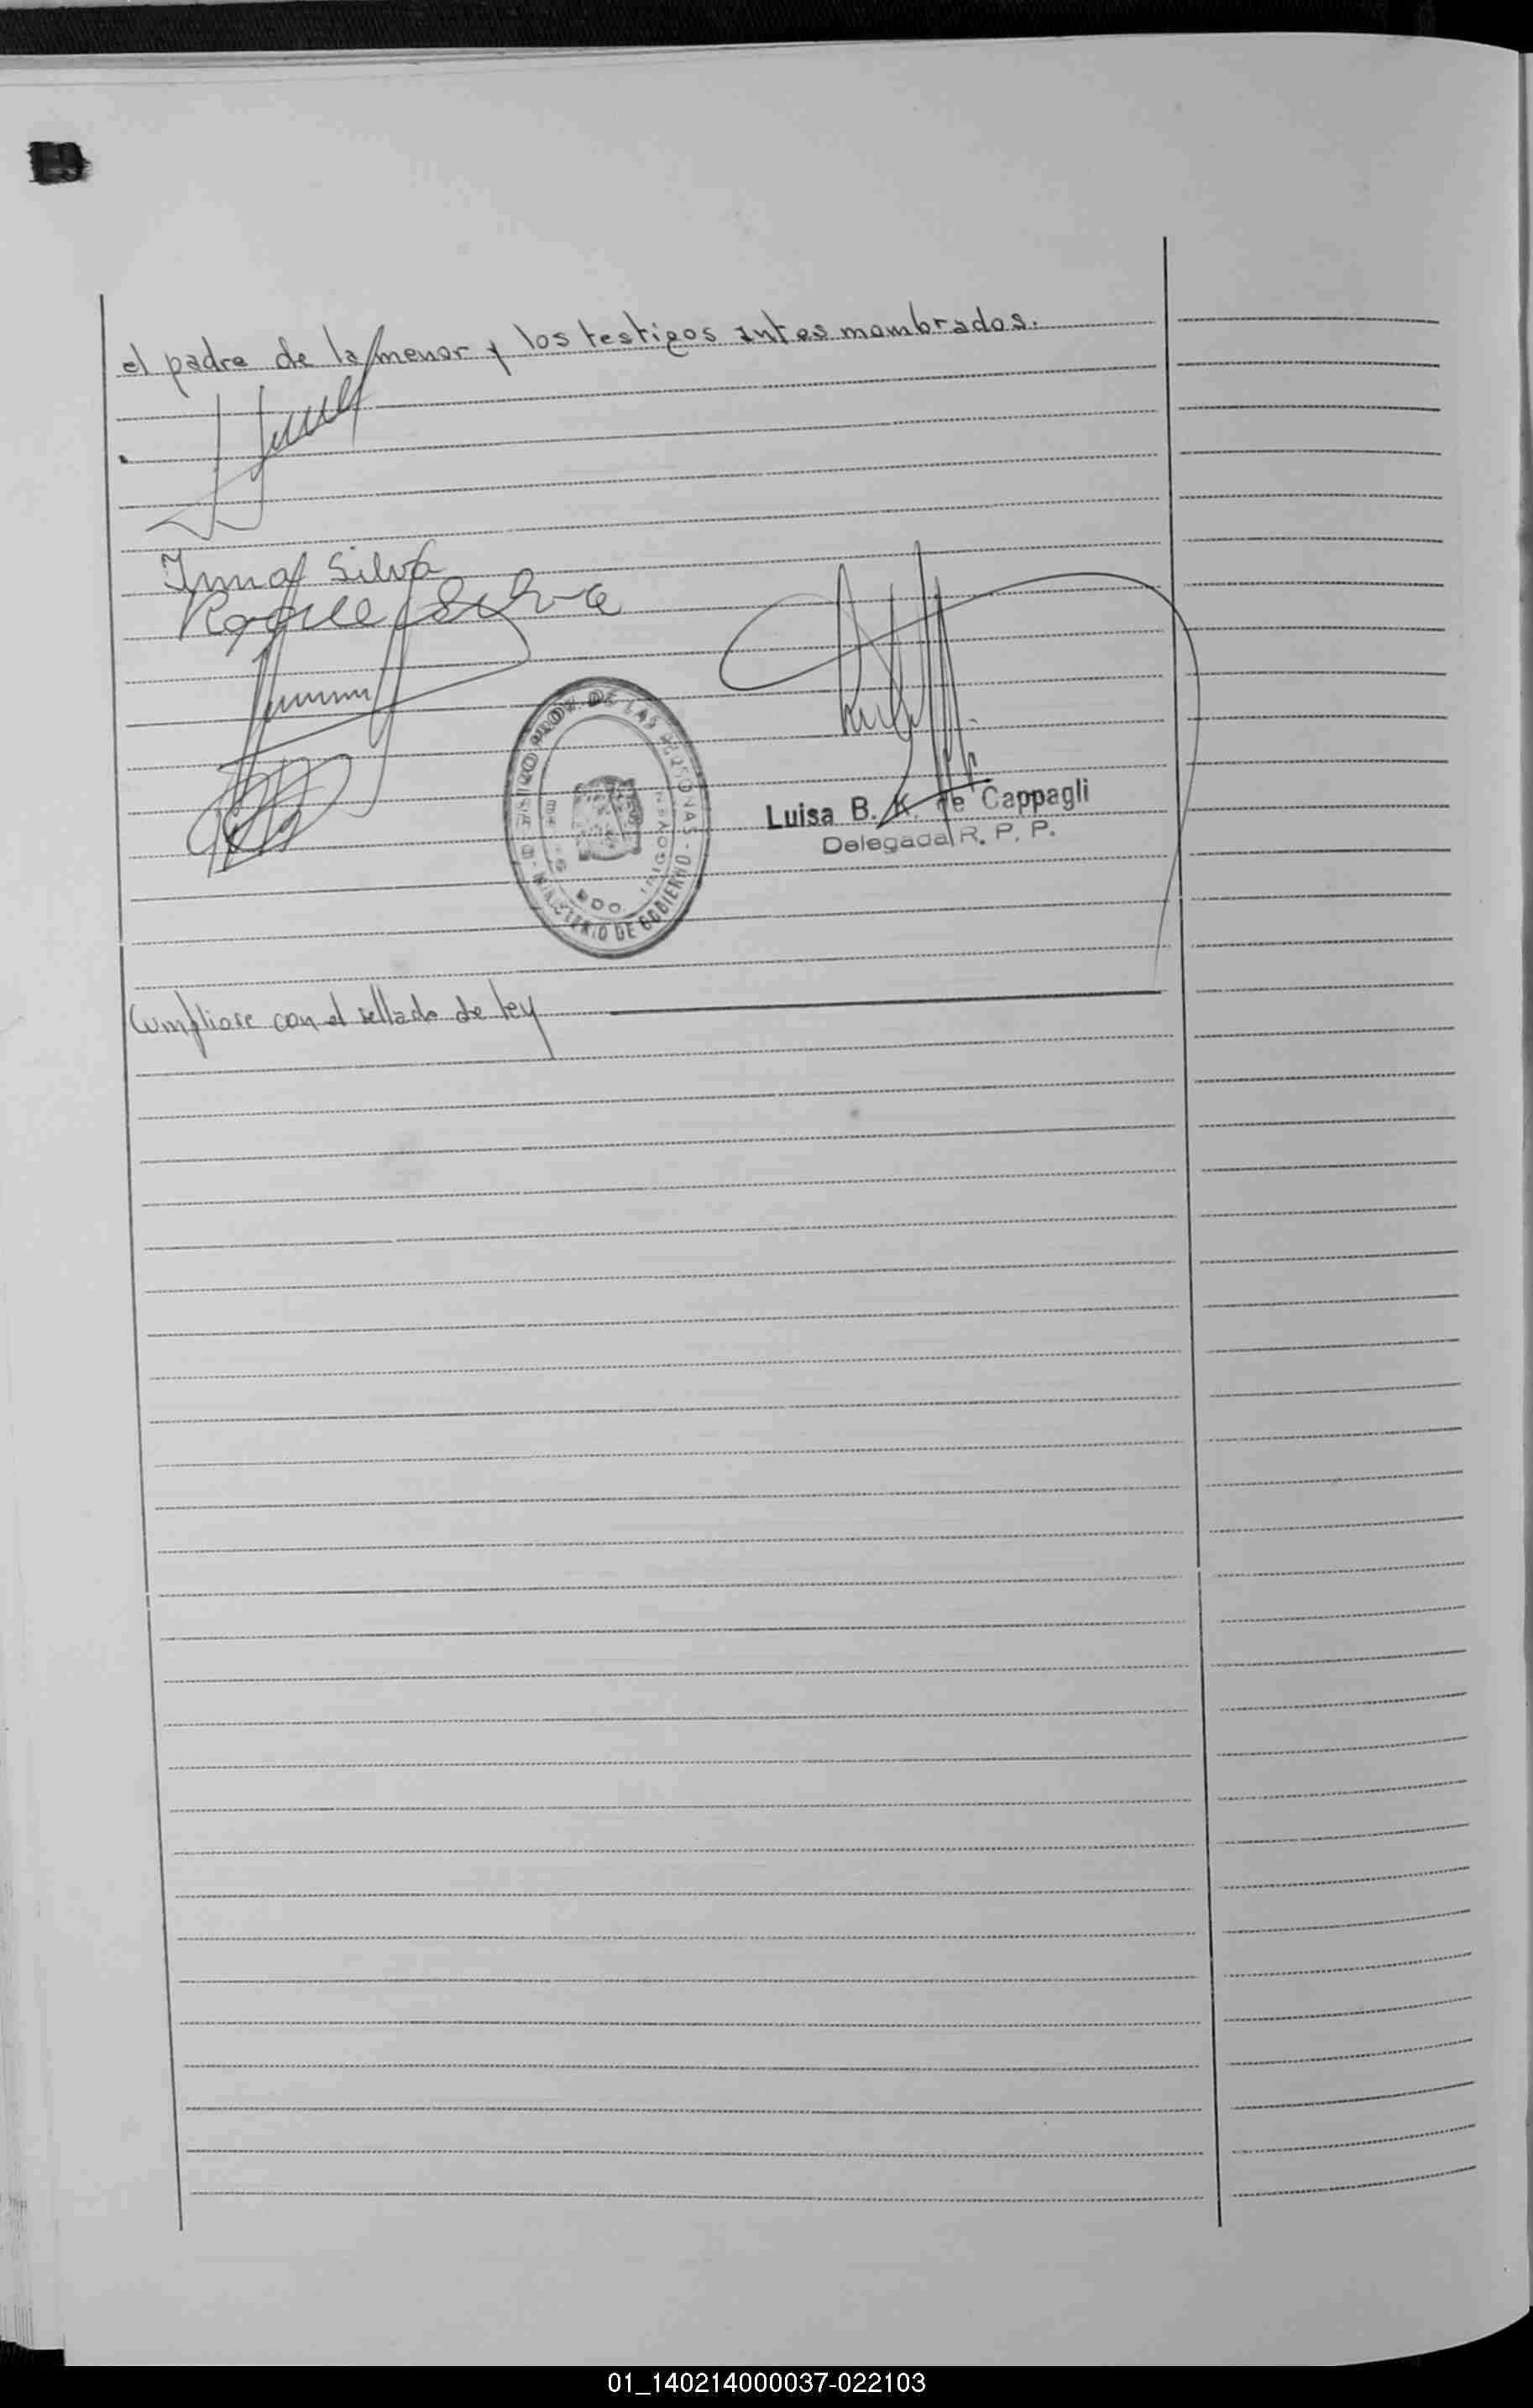 el padre de la menor y los testigos antes mombrados.
Irma Silva
Roque Silva
REGISTRO PROV. DE LAS PERSONAS - MINISTERIO DE GOBIERNO
BDO. IRIGOYEN
Luisa B. K. de Cappagli
Delegada R. P. P.
Cumpliose con el sellado de ley
01_140214000037-022103